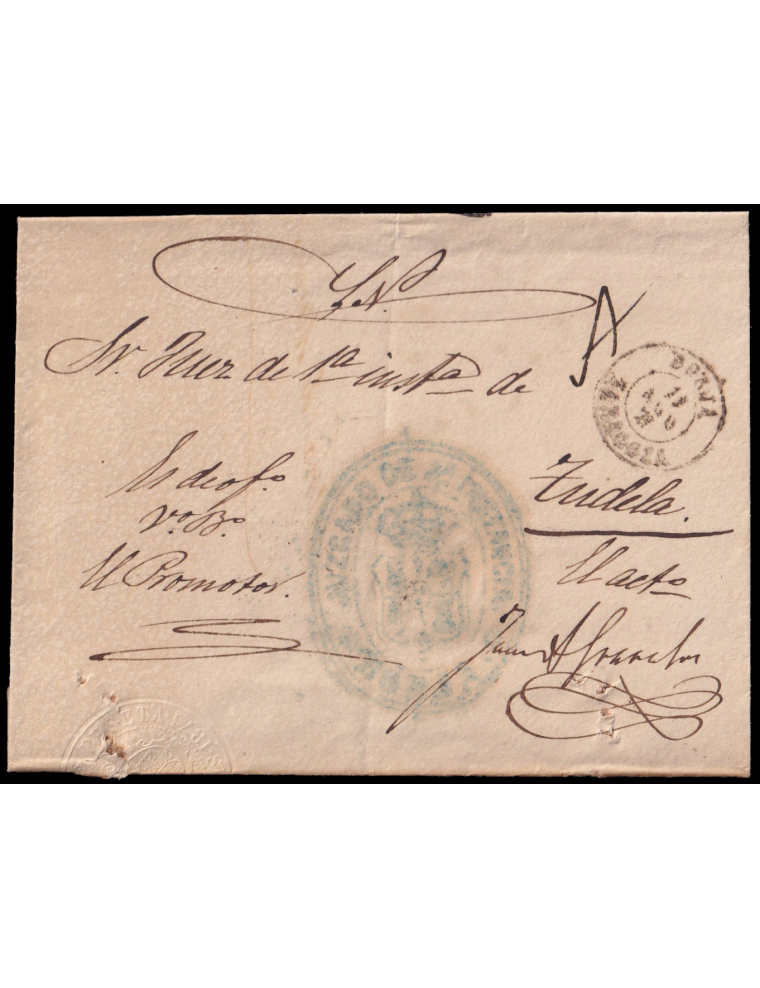 S.N.
Sr. Juez de 1ª instª de
BORJA
13
AGO
ZARAGOZA
Es de ofº
Tudela.
Vº Bº
El Promotor.
El actº
JUZGADO DE 1ª INSTANCIA
Juan A